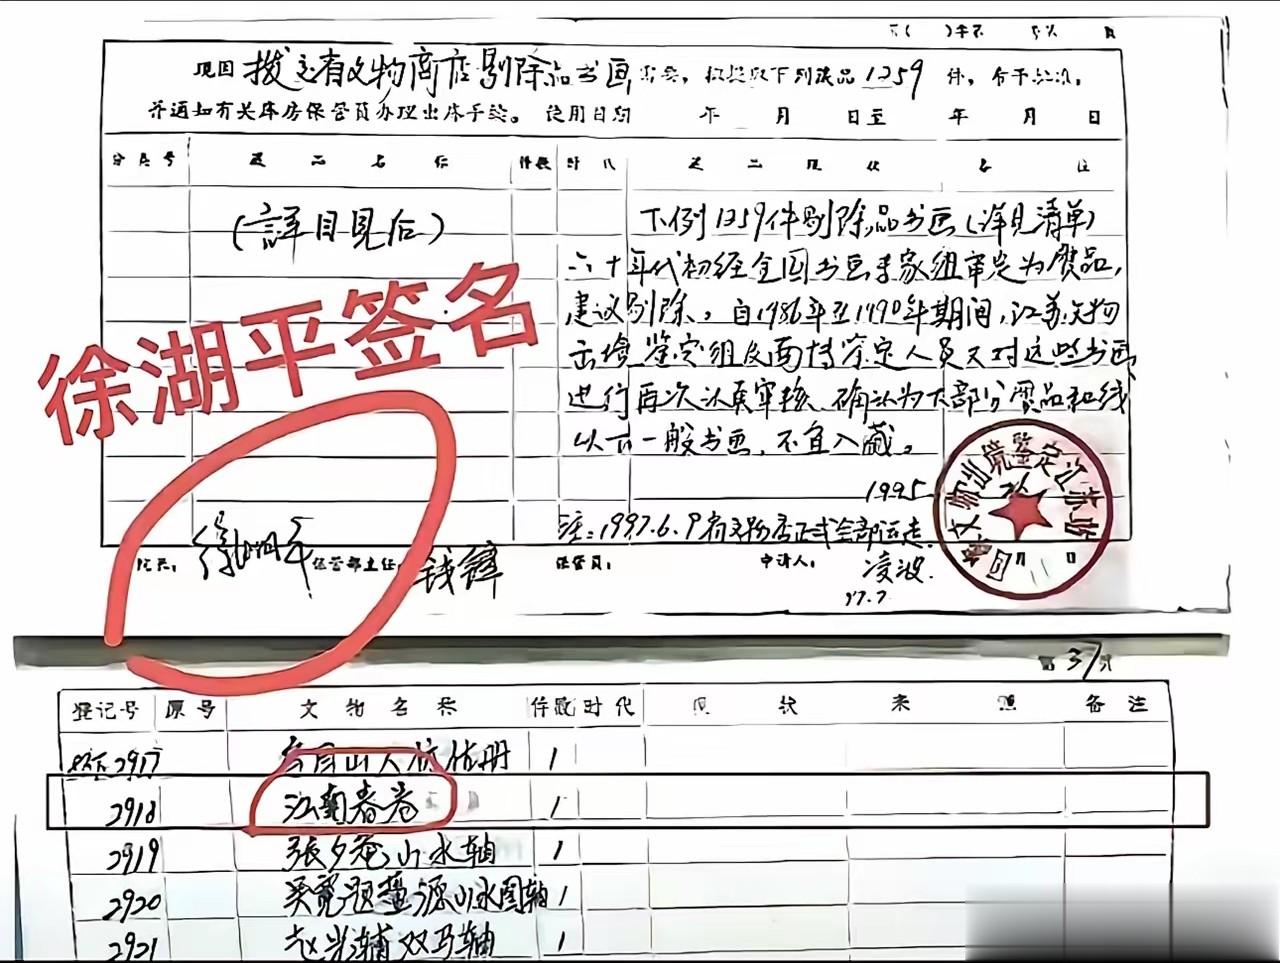 现因拨交省文物商店剔除品书画需要,拟提取下列藏品1259件,希予批准。
并通知有关库房保管员办理出库手续。使用日期 年 月 日至 年 月 日
分类号 藏品名称 件数 时代 藏品现状 备注
(详目见后)
下例1259件剔除品书画(详见清单)
六十年代初经全国书画专家组审定为赝品,
建议剔除。自1986年至1990年期间,江苏文物
出境鉴定组及南博鉴定人员又对这些书画
进行再次认真审核,确认为大部分赝品和线
以下一般书画,不宜入藏。
1995
注:1997.6.9省文物店正式全部运走.
院长: 徐湖平 保管部主任: 钱锋 保管员: 申请人: 凌波.
97.7
徐湖平签名
文物出境鉴定江苏站
第37页
登记号 原号 文物名称 件数 时代 现状 来源 备注
2917 1
2918 江南春卷 1
2919 張夕菴山水轴 1
2920 吴宽题董源山水图轴 1
2921 赵光辅双马轴 1